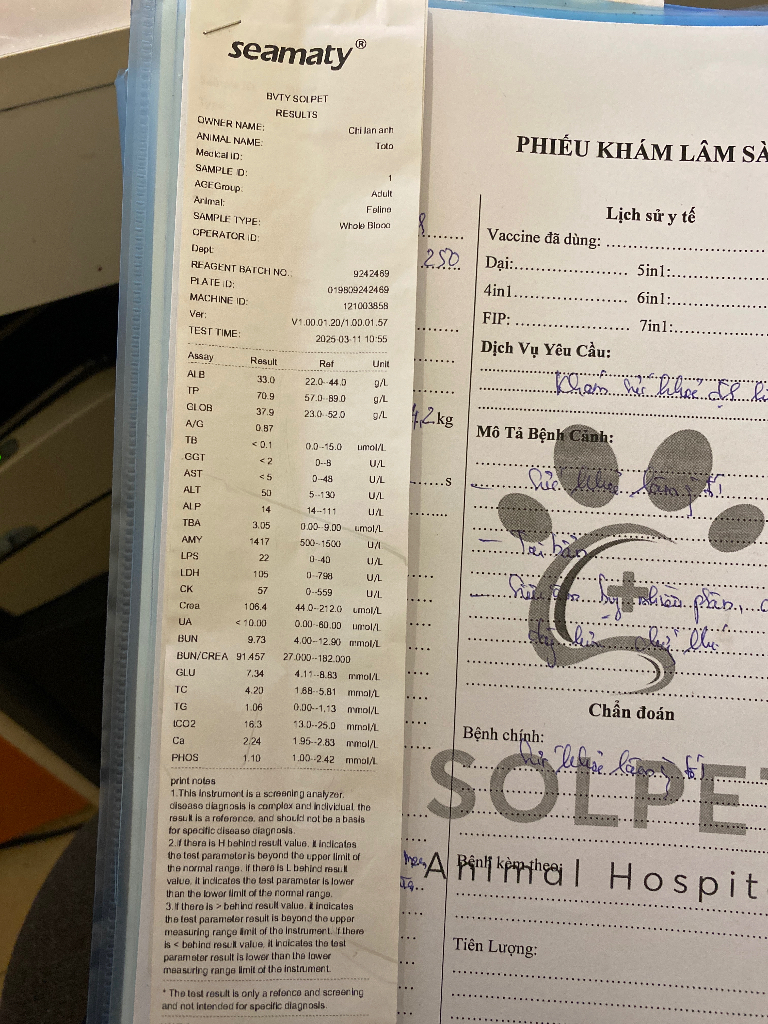 seamaty®
BVTY SOLPET
RESULTS
OWNER NAME: Chi lan anh
ANIMAL NAME: Toto
Medical ID:
SAMPLE ID: 1
AGEGroup: Adult
Animal: Feline
SAMPLE TYPE: Whole Blood
OPERATOR ID:
Dept:
REAGENT BATCH NO.: 9242469
PLATE ID: 019809242469
MACHINE ID: 121003858
Ver: V1.00.01.20/1.00.01.57
TEST TIME: 2025-03-11 10:55
Assay Result Ref Unit
ALB 33.0 22.0--44.0 g/L
TP 70.9 57.0--89.0 g/L
GLOB 37.9 23.0--52.0 g/L
A/G 0.87
TB <0.1 0.0--15.0 umol/L
GGT <2 0--8 U/L
AST <5 0--48 U/L
ALT 50 5--130 U/L
ALP 14 14--111 U/L
TBA 3.05 0.00--9.00 umol/L
AMY 1417 500--1500 U/l
LPS 22 0--40 U/L
LDH 105 0--798 U/L
CK 57 0--559 U/L
Crea 106.4 44.0--212.0 umol/L
UA <10.00 0.00--60.00 umol/L
BUN 9.73 4.00--12.90 mmol/L
BUN/CREA 91.457 27.000--182.000
GLU 7.34 4.11--8.83 mmol/L
TC 4.20 1.68--5.81 mmol/L
TG 1.06 0.00--1.13 mmol/L
tCO2 16.3 13.0--25.0 mmol/L
Ca 2.24 1.95--2.83 mmol/L
PHOS 1.10 1.00--2.42 mmol/L
print notes
1.This instrument is a screening analyzer.
disease diagnosis is complex and individual. the
result is a reference, and should not be a basis
for specific disease diagnosis.
2.if there is H behind result value, it indicates
the test parameter is beyond the upper limit of
the normal range. if there is L behind result
value, it indicates the test parameter is lower
than the lower limit of the normal range.
3.if there is > behind result value, it indicates
the test parameter result is beyond the upper
measuring range limit of the instrument. if there
is < behind result value, it indicates the test
parameter result is lower than the lower
measuring range limit of the instrument.
* The test result is only a refence and screening
and not intended for specific diagnosis.
PHIẾU KHÁM LÂM SÀ
Lịch sử y tế
Vaccine đã dùng:
250
Dại: 5in1:
4in1 6in1:
FIP: 7in1:
Dịch Vụ Yêu Cầu:
Khám sức khoẻ
4,2 kg
Mô Tả Bệnh Cảnh:
s
- Sức khoẻ
Chẩn đoán
Bệnh chính:
Sức khoẻ
SOLPE
Bệnh kèm theo:
Animal Hospit
Tiên Lượng: